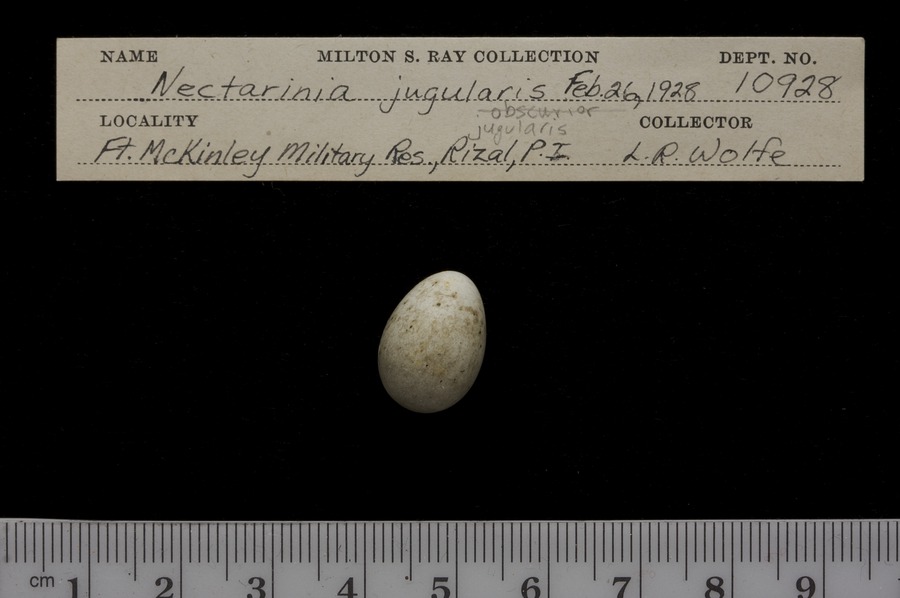 NAME MILTON S. RAY COLLECTION DEPT. NO.
Nectarinia jugularis Feb. 26, 1928 10928
obscurior
jugularis
LOCALITY COLLECTOR
Ft. McKinley Military Res., Rizal, P.I. L.R. Wolfe
cm 1 2 3 4 5 6 7 8 9